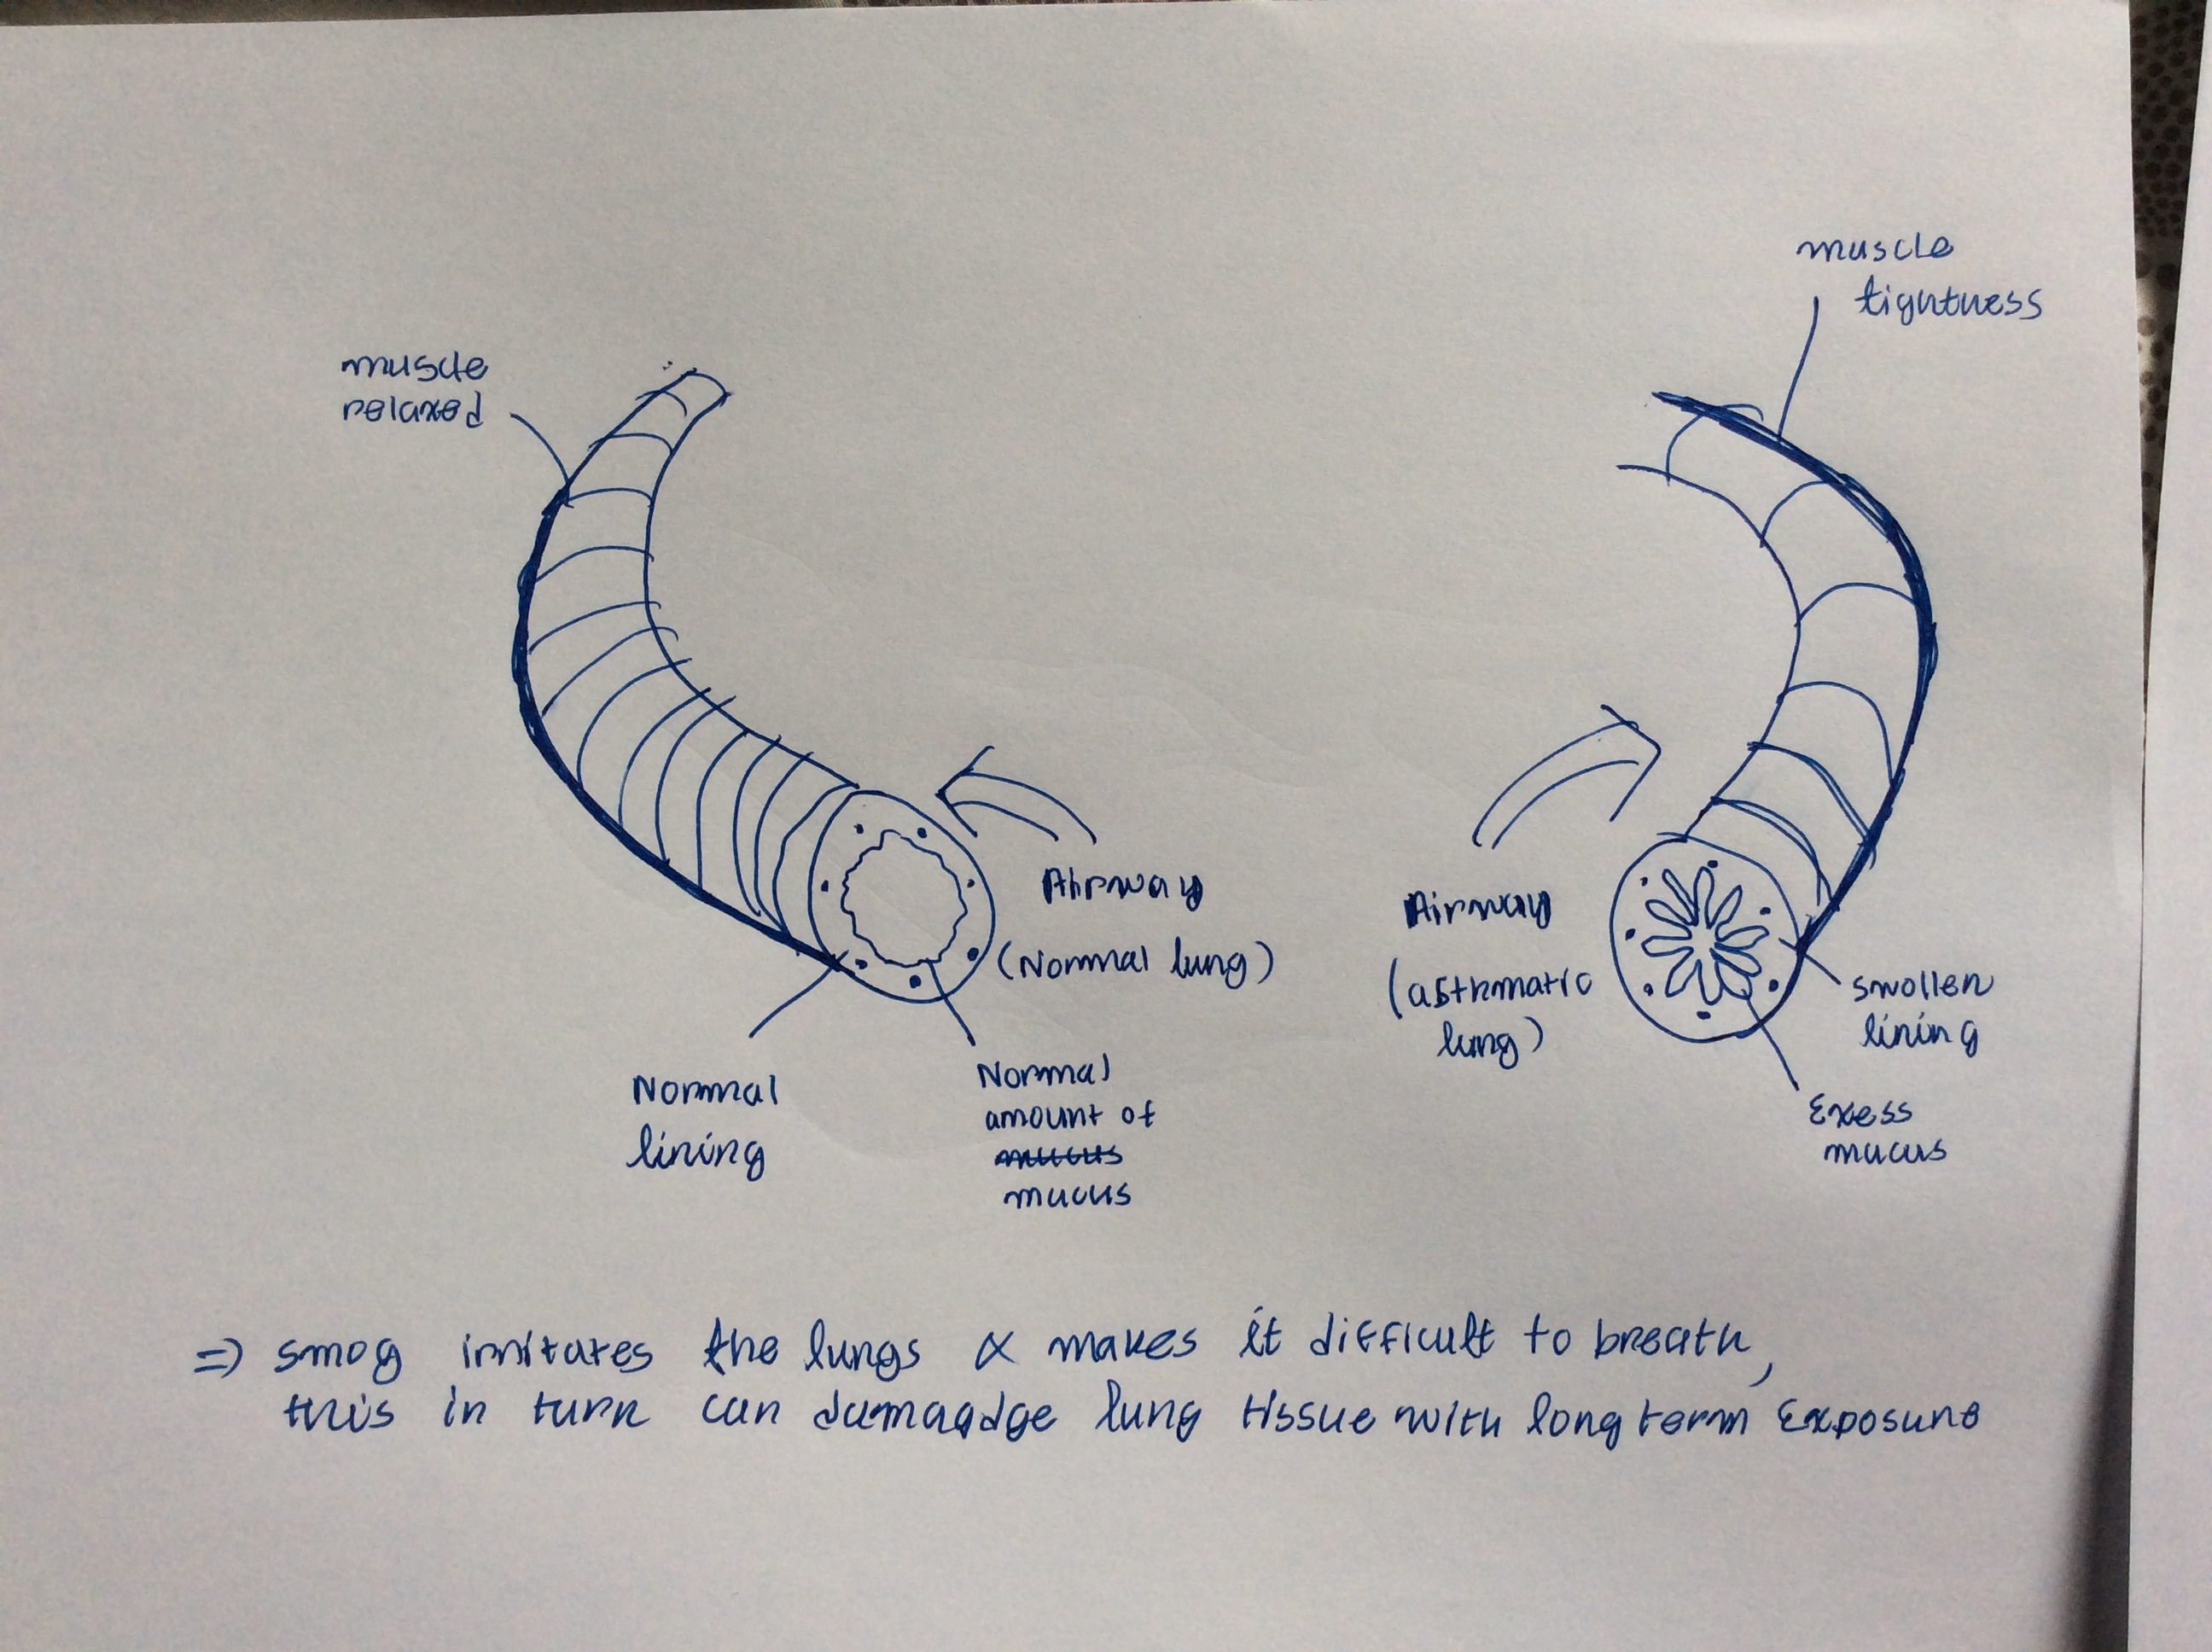 muscle
tightness
muscle
relaxed
Airway
(Normal lung)
Airway
(asthmatic
lung)
swollen
lining
Normal
lining
Normal
amount of
mucus
mucus
Exess
mucus
=> smog irritates the lungs & makes it difficult to breath,
this in turn can damagdge lung tissue with long term Exposure